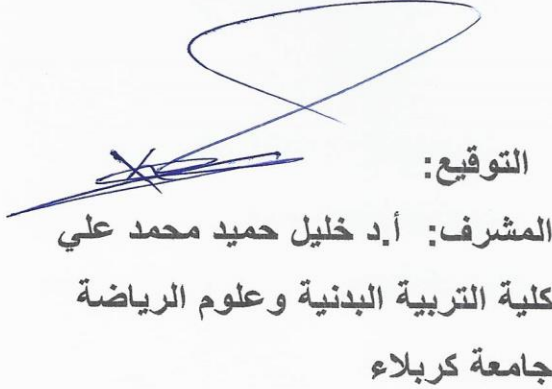 التوقيع:
المشرف: أ.د خليل حميد محمد علي
كلية التربية البدنية وعلوم الرياضة
جامعة كربلاء